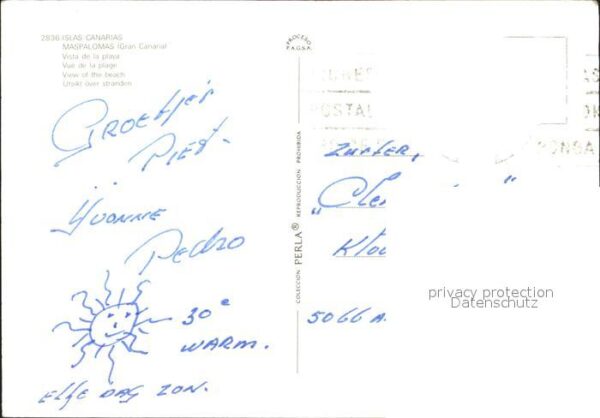 2836 ISLAS CANARIAS
MASPALOMAS (Gran Canaria)
Vista de la playa
Vue de la plage
View of the beach
Utsikt över stranden
PROCESO
F.A.G.S.A.
Groetjes
Piet.
Yvonne
Pedro
30°
WARM.
elke dag zon.
COLECCION PERLA® REPRODUCCION PROHIBIDA
POSTAL
"Cle "
Klou
5066 A.
privacy protection
Datenschutz